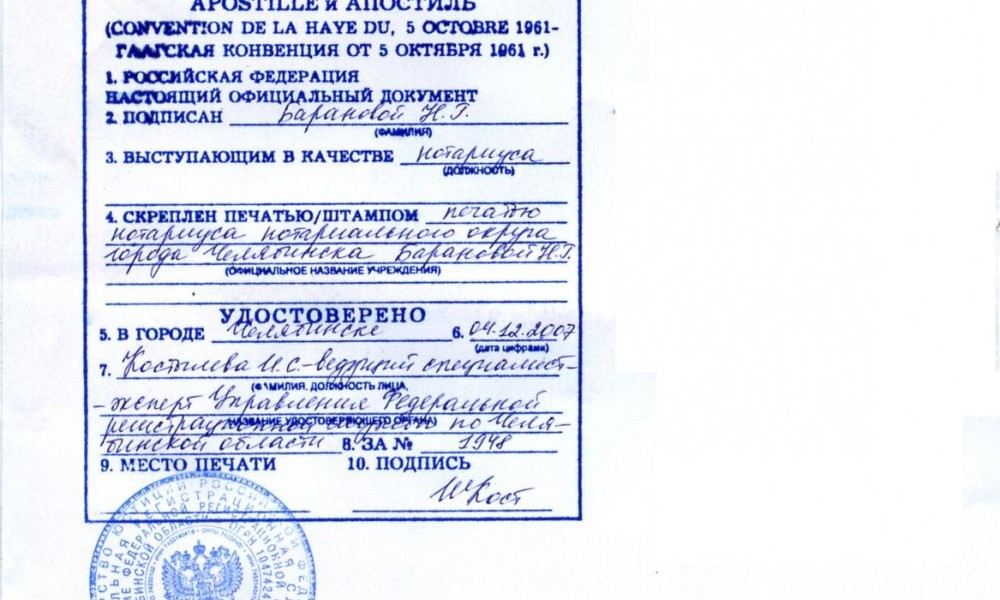 APOSTILLE и АПОСТИЛЬ
(CONVENTION DE LA HAYE DU, 5 OCTOBRE 1961-
ГААГСКАЯ КОНВЕНЦИЯ ОТ 5 ОКТЯБРЯ 1961 г.)
1. РОССИЙСКАЯ ФЕДЕРАЦИЯ
НАСТОЯЩИЙ ОФИЦИАЛЬНЫЙ ДОКУМЕНТ
2. ПОДПИСАН Барановой Н.Г.
(ФАМИЛИЯ)
3. ВЫСТУПАЮЩИМ В КАЧЕСТВЕ нотариуса
(ДОЛЖНОСТЬ)
4. СКРЕПЛЕН ПЕЧАТЬЮ/ШТАМПОМ печатью
нотариуса нотариального округа
города Челябинска Барановой Н.Г.
(ОФИЦИАЛЬНОЕ НАЗВАНИЕ УЧРЕЖДЕНИЯ)
УДОСТОВЕРЕНО
5. В ГОРОДЕ Челябинске 6. 04.12.2007
(дата цифрами)
7. Костылева И.С.-ведущий специалист-
(ФАМИЛИЯ, ДОЛЖНОСТЬ ЛИЦА,
-эксперт Управления Федеральной
НАЗВАНИЕ УДОСТОВЕРЯЮЩЕГО ОРГАНА)
регистрационной службы по Челя-
бинской области 8. ЗА № 1948
9. МЕСТО ПЕЧАТИ 10. ПОДПИСЬ
Кост